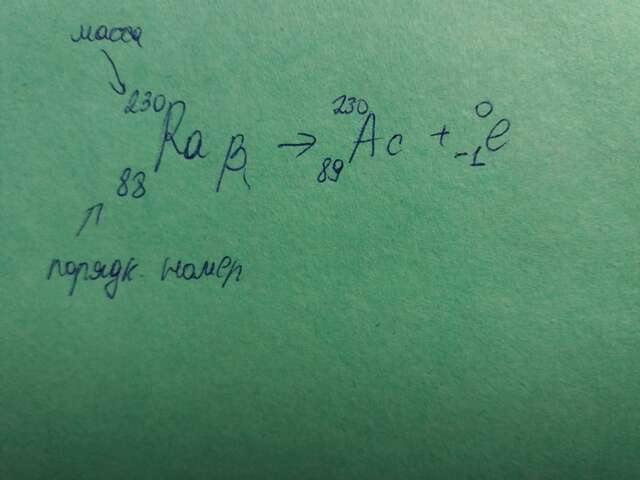 масса
²³⁰₈₈Ra β → ²³⁰₈₉Ac + ⁰₋₁e
порядк. номер